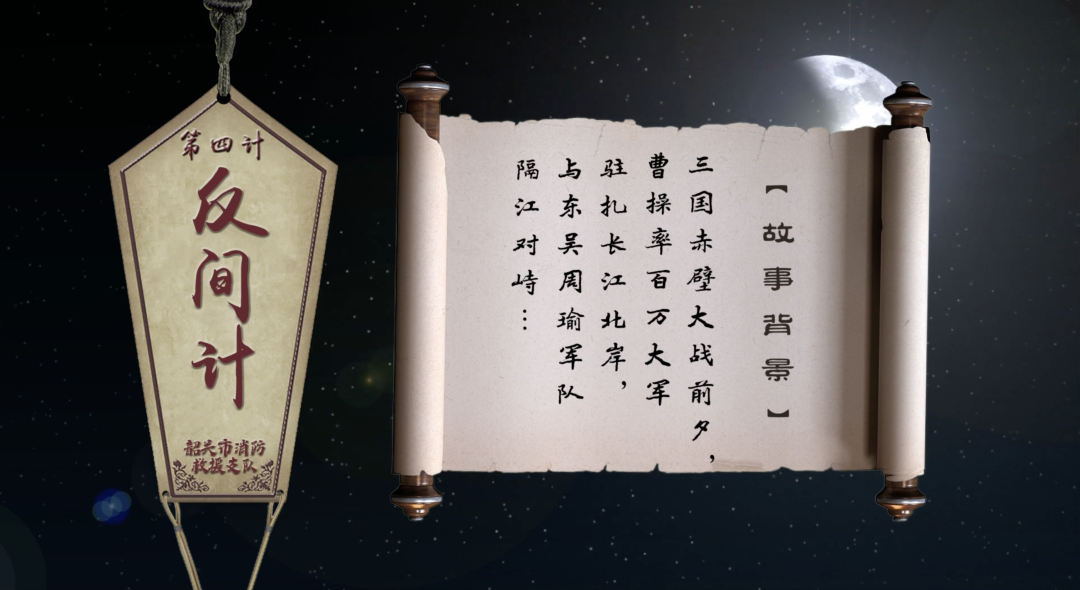 第四计
反间计
韶关市消防
救援支队
【故事背景】
三国赤壁大战前夕，
曹操率百万大军
驻扎长江北岸，
与东吴周瑜军队
隔江对峙…